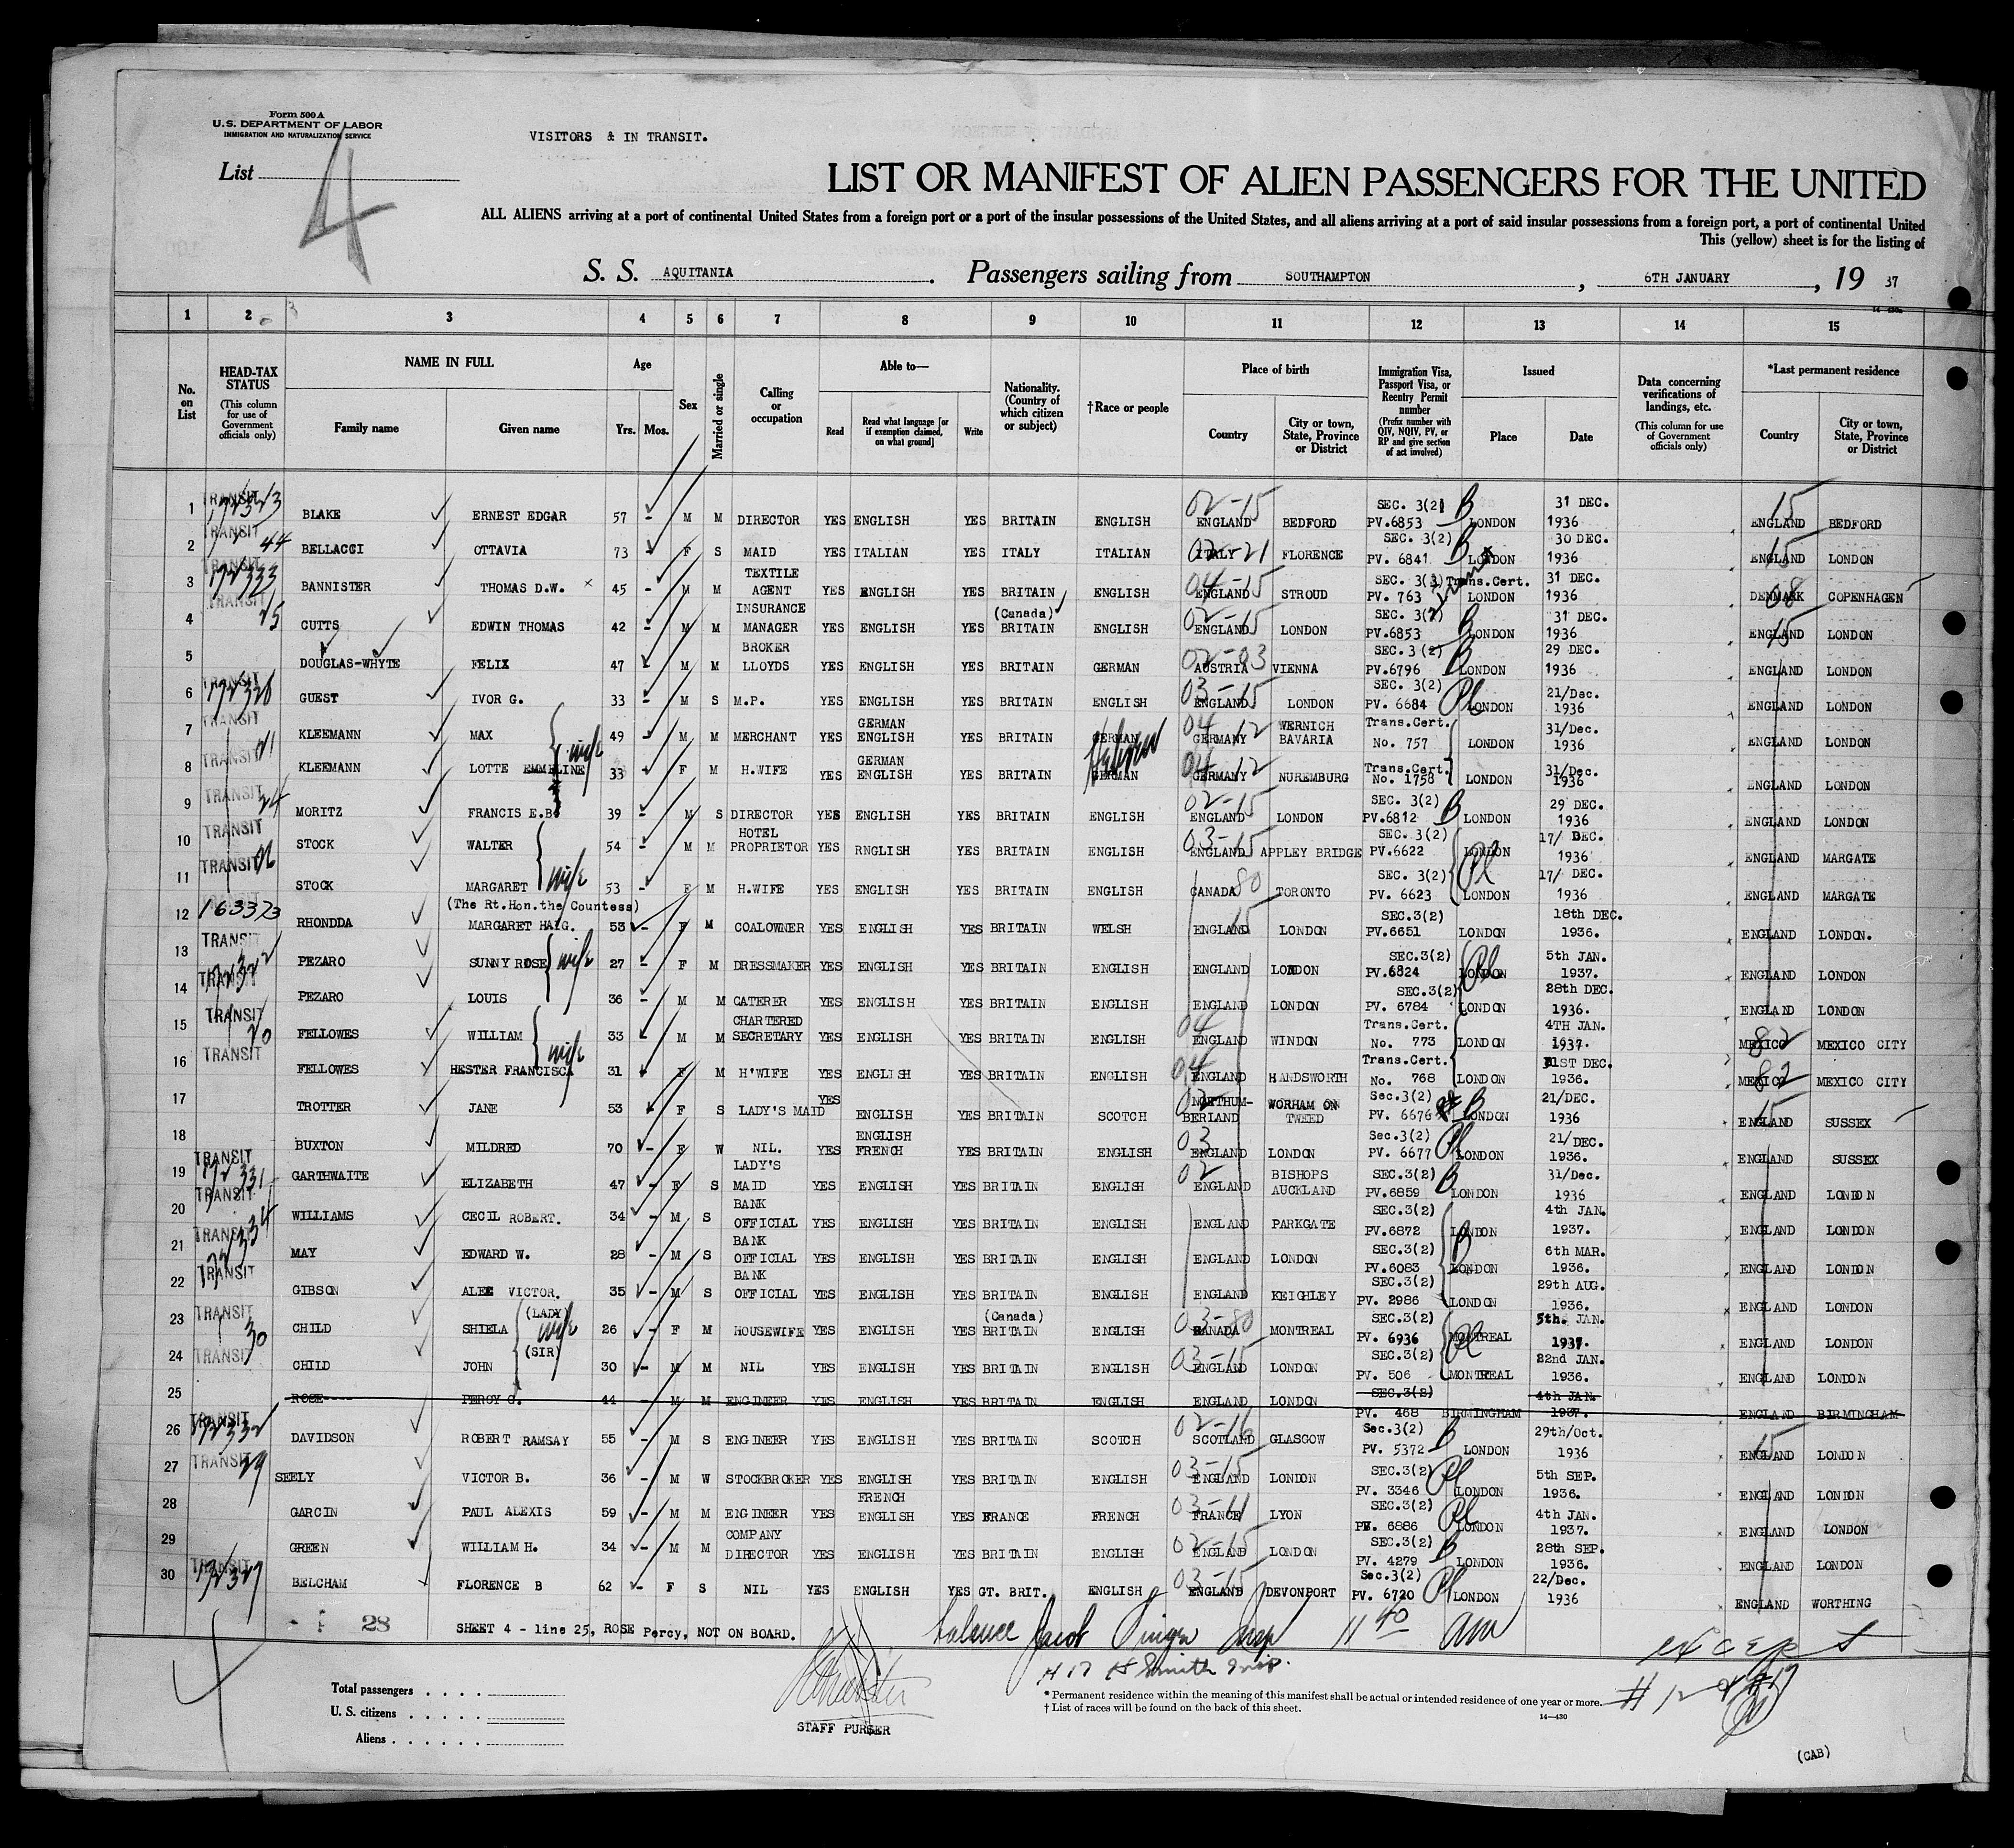 Form 500 A
U.S. DEPARTMENT OF LABOR
IMMIGRATION AND NATURALIZATION SERVICE
VISITORS & IN TRANSIT.
List 4
LIST OR MANIFEST OF ALIEN PASSENGERS FOR THE UNITED
ALL ALIENS arriving at a port of continental United States from a foreign port or a port of the insular possessions of the United States, and all aliens arriving at a port of said insular possessions from a foreign port, a port of continental United
This (yellow) sheet is for the listing of
S. S. AQUITANIA. Passengers sailing from SOUTHAMPTON, 6TH JANUARY, 19 37
1 2 3 4 5 6 7 8 9 10 11 12 13 14 15
No. on List
HEAD-TAX STATUS (This column for use of Government officials only)
NAME IN FULL Family name Given name
Age Yrs. Mos.
Sex
Married or single
Calling or occupation
Able to— Read Read what language [or if exemption claimed, on what ground] Write
Nationality. (Country of which citizen or subject)
†Race or people
Place of birth Country City or town, State, Province or District
Immigration Visa, Passport Visa, or Reentry Permit number (Prefix number with QIV, NQIV, PV, or RP and give section of act involved)
Issued Place Date
Data concerning verifications of landings, etc. (This column for use of Government officials only)
*Last permanent residence Country City or town, State, Province or District
1 TRANSIT 172323 BLAKE ERNEST EDGAR 57 - M M DIRECTOR YES ENGLISH YES BRITAIN ENGLISH 02-15 ENGLAND BEDFORD SEC. 3(2) PV.6853 B LONDON 31 DEC. 1936 15 ENGLAND BEDFORD
2 TRANSIT 44 BELLACCI OTTAVIA 73 F S MAID YES ITALIAN YES ITALY ITALIAN 02-21 ITALY FLORENCE SEC. 3(2) PV. 6841 B LONDON 30 DEC. 1936 15 ENGLAND LONDON
3 TRANSIT 172333 BANNISTER THOMAS D.W. × 45 - M M TEXTILE AGENT YES ENGLISH YES BRITAIN ENGLISH 04-15 ENGLAND STROUD SEC. 3(3) Trans.Cert. PV. 763 LONDON 31 DEC. 1936 08 DENMARK COPENHAGEN
4 TRANSIT 25 CUTTS EDWIN THOMAS 42 - M M INSURANCE MANAGER YES ENGLISH YES (Canada) BRITAIN ENGLISH 02-15 ENGLAND LONDON SEC. 3(2) PV.6853 B LONDON 31 DEC. 1936 15 ENGLAND LONDON
5 DOUGLAS-WHYTE FELIX 47 - M M BROKER LLOYDS YES ENGLISH YES BRITAIN GERMAN 02-03 AUSTRIA VIENNA SEC. 3(2) PV.6796 B LONDON 29 DEC. 1936 ENGLAND LONDON
6 TRANSIT 172328 GUEST IVOR G. 33 - M S M.P. YES ENGLISH YES BRITAIN ENGLISH 03-15 ENGLAND LONDON SEC. 3(2) PV. 6684 Pl LONDON 21/Dec. 1936 ENGLAND LONDON
7 TRANSIT KLEEMANN MAX 49 - M M MERCHANT YES GERMAN ENGLISH YES BRITAIN GERMAN Hebrew 04 12 GERMANY WERNICH BAVARIA Trans.Cert. No. 757 LONDON 31/Dec. 1936 ENGLAND LONDON
8 TRANSIT 21 KLEEMANN LOTTE EMMELINE wife 33 - F M H.WIFE YES GERMAN ENGLISH YES BRITAIN GERMAN 04-12 GERMANY NUREMBURG Trans.Cert. No. 1758 LONDON 31/Dec. 1936 ENGLAND LONDON
9 TRANSIT 24 MORITZ FRANCIS E.B. 39 - M S DIRECTOR YES ENGLISH YES BRITAIN ENGLISH 02-15 ENGLAND LONDON SEC. 3(2) PV.6812 B LONDON 29 DEC. 1936 ENGLAND LONDON
10 TRANSIT STOCK WALTER 54 - M M HOTEL PROPRIETOR YES RNGLISH YES BRITAIN ENGLISH 03-15 ENGLAND APPLEY BRIDGE SEC. 3(2) PV.6622 LONDON 17/ DEC. 1936 ENGLAND MARGATE
11 TRANSIT 26 STOCK MARGARET wife 53 - F M H.WIFE YES ENGLISH YES BRITAIN ENGLISH CANADA 80 TORONTO SEC. 3(2) PV. 6623 Pl LONDON 17/ DEC. 1936 ENGLAND MARGATE
12 163373 RHONDDA (The Rt.Hon.the Countess) MARGARET HAIG. 53 - F M COALOWNER YES ENGLISH YES BRITAIN WELSH 15 ENGLAND LONDON SEC.3(2) PV.6651 LONDON 18th DEC. 1936. ENGLAND LONDON.
13 TRANSIT PEZARO SUNNY ROSE wife 27 - F M DRESSMAKER YES ENGLISH YES BRITAIN ENGLISH ENGLAND LONDON SEC.3(2) PV.6824 Pl LONDON 5th JAN. 1937. ENGLAND LONDON
14 TRANSIT PEZARO LOUIS 36 - M M CATERER YES ENGLISH YES BRITAIN ENGLISH ENGLAND LONDON SEC.3(2) PV. 6784 LONDON 28th DEC. 1936. ENGLAND LONDON
15 TRANSIT 20 FELLOWES WILLIAM 33 - M M CHARTERED SECRETARY YES ENGLISH YES BRITAIN ENGLISH 04 ENGLAND WINDON Trans.Cert. No. 773 LONDON 4TH JAN. 1937. 82 MEXICO MEXICO CITY
16 TRANSIT FELLOWES HESTER FRANCISCA wife 31 - F M H'WIFE YES ENGLISH YES BRITAIN ENGLISH 04 ENGLAND HANDSWORTH Trans.Cert. No. 768 LONDON 31ST DEC. 1936. 82 MEXICO MEXICO CITY
17 TROTTER JANE 53 F S LADY'S MAID YES ENGLISH YES BRITAIN SCOTCH 02 NORTHUM-BERLAND WORHAM ON TWEED Sec.3(2) PV. 6676 B LONDON 21/DEC. 1936 15 ENGLAND SUSSEX
18 BUXTON MILDRED 70 - F W NIL. YES ENGLISH FRENCH YES BRITAIN ENGLISH 03 ENGLAND LONDON Sec.3(2) PV. 6677 Pl LONDON 21/DEC. 1936. ENGLAND SUSSEX
19 TRANSIT 172331 GARTHWAITE ELIZABETH 47 - F S LADY'S MAID YES ENGLISH YES BRITAIN ENGLISH 02 ENGLAND BISHOPS AUCKLAND SEC.3(2) PV.6859 B LONDON 31/Dec. 1936 ENGLAND LONDON
20 TRANSIT WILLIAMS CECIL ROBERT. 34 - M S BANK OFFICIAL YES ENGLISH YES BRITAIN ENGLISH ENGLAND PARKGATE SEC.3(2) PV.6872 LONDON 4th JAN. 1937. ENGLAND LONDON
21 TRANSIT MAY EDWARD W. 28 - M S BANK OFFICIAL YES ENGLISH YES BRITAIN ENGLISH ENGLAND LONDON SEC.3(2) PV.6083 B LONDON 6th MAR. 1936. ENGLAND LONDON
22 TRANSIT GIBSON ALEC VICTOR. 35 - M S BANK OFFICIAL YES ENGLISH YES BRITAIN ENGLISH ENGLAND KEIGHLEY SEC.3(2) PV. 2986 LONDON 29th AUG. 1936. ENGLAND LONDON
23 TRANSIT 30 CHILD SHIELA (LADY) wife 26 - F M HOUSEWIFE YES ENGLISH YES (Canada) BRITAIN ENGLISH 03-80 CANADA MONTREAL SEC.3(2) PV. 6936 Pl MONTREAL 5th. JAN. 1937. ENGLAND LONDON
24 TRANSIT CHILD JOHN (SIR) 30 - M M NIL YES ENGLISH YES BRITAIN ENGLISH 03-15 ENGLAND LONDON SEC.3(2) PV. 506 MONTREAL 22nd JAN. 1936. ENGLAND LONDON
25 ROSE---- PERCY G. 44 - M M ENGINEER YES ENGLISH YES BRITAIN ENGLISH ENGLAND LONDON SEC.3(2) PV. 468 BIRMINGHAM 4th JAN. 1937. ENGLAND BIRMINGHAM
26 TRANSIT 172332 DAVIDSON ROBERT RAMSAY 55 - M S ENGINEER YES ENGLISH YES BRITAIN SCOTCH 02-16 SCOTLAND GLASGOW Sec.3(2) PV. 5372 B LONDON 29th/Oct. 1936 15 ENGLAND LONDON
27 TRANSIT 29 SEELY VICTOR B. 36 - M W STOCKBROKER YES ENGLISH YES BRITAIN ENGLISH 03-15 ENGLAND LONDON SEC.3(2) PV. 3346 Pl LONDON 5th SEP. 1936. ENGLAND LONDON
28 GARCIN PAUL ALEXIS 59 - M M ENGINEER YES FRENCH ENGLISH YES FRANCE FRENCH 03-11 FRANCE LYON SEC.3(2) PV. 6886 Pl LONDON 4th JAN. 1937. ENGLAND LONDON
29 GREEN WILLIAM H. 34 - M M COMPANY DIRECTOR YES ENGLISH YES BRITAIN ENGLISH 02-15 ENGLAND LONDON SEC.3(2) PV. 4279 B LONDON 28th SEP. 1936. ENGLAND LONDON
30 TRANSIT 172327 BELCHAM FLORENCE B 62 - F S NIL YES ENGLISH YES GT. BRIT. ENGLISH 03-15 ENGLAND DEVONPORT Sec.3(2) PV. 6720 Pl LONDON 22/Dec. 1936 ENGLAND WORTHING
28 SHEET 4 - line 25, ROSE Percy, NOT ON BOARD.
balance Jacob Insp 11 40 am
# 17 H Smith Insp.
Except
# 12 & #17
Total passengers . . . .
U. S. citizens . . . . .
Aliens . . . . . .
STAFF PURSER
* Permanent residence within the meaning of this manifest shall be actual or intended residence of one year or more.
† List of races will be found on the back of this sheet.
14—430
(CAB)